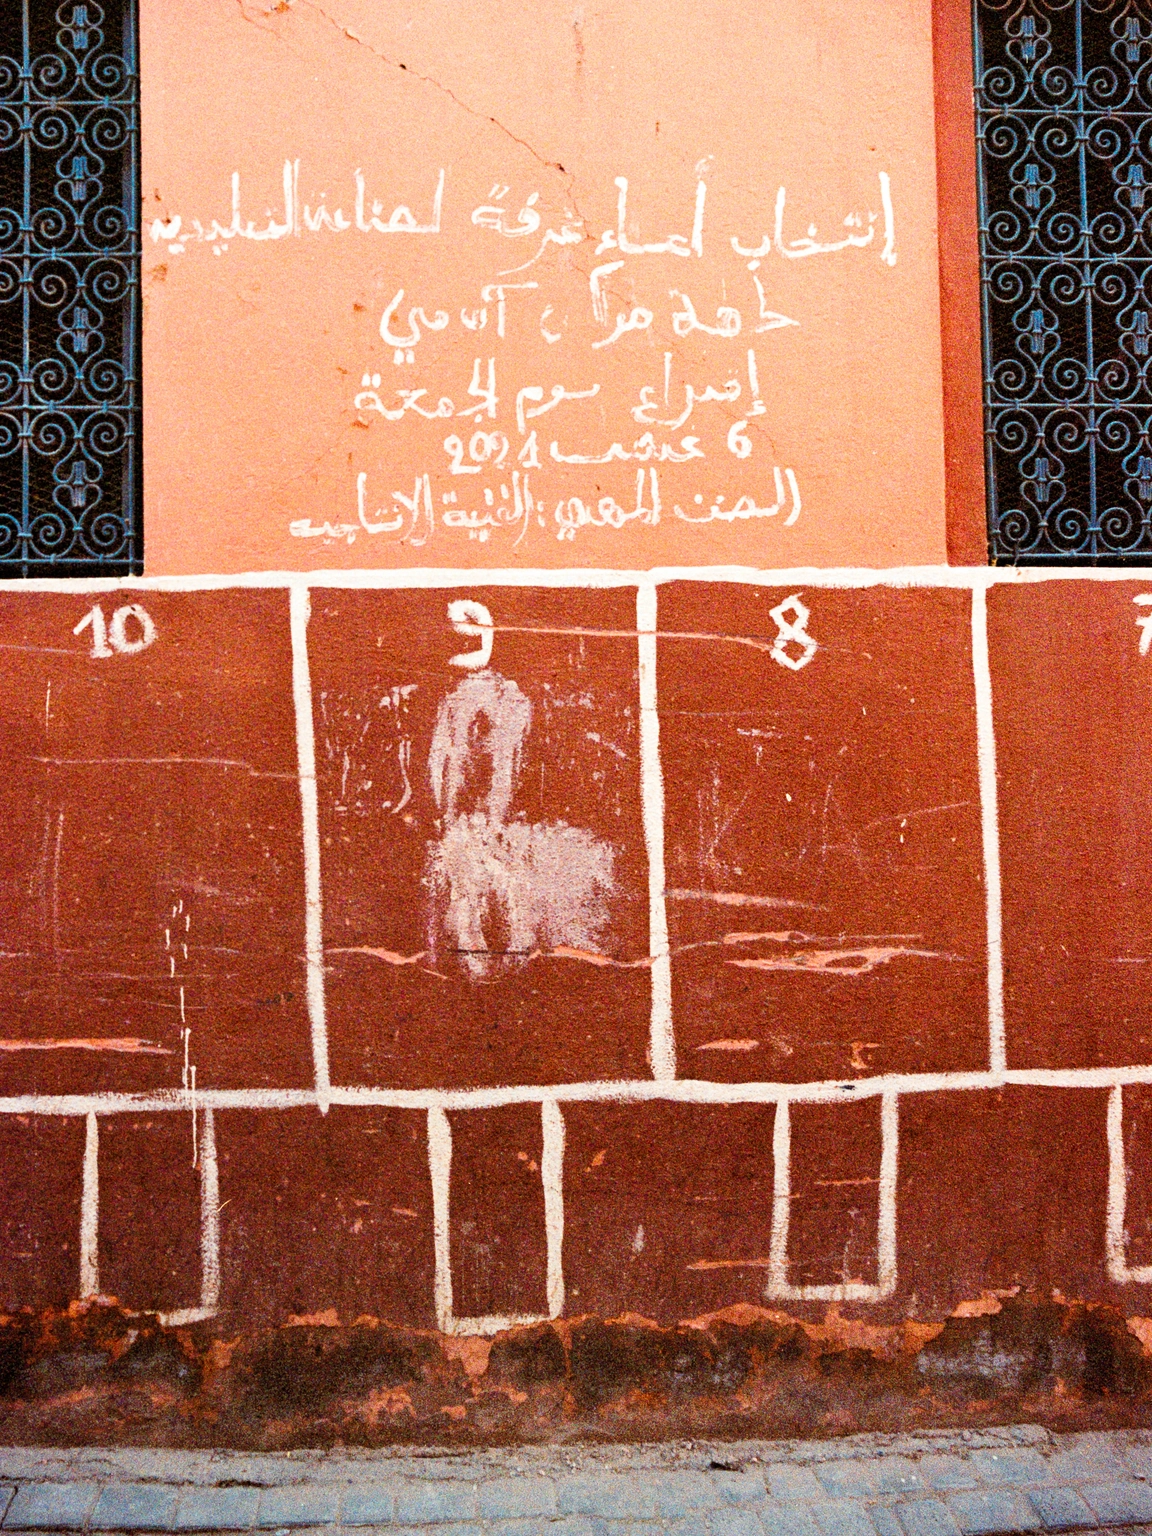 إنتخاب أعضاء غرفة لصناعة التقليدية
جهة مراكش آسفي
إقتراع يوم الجمعة
6 غشت 2021
الصنف المهني: الفنية الانتاجية
10
9
8
7